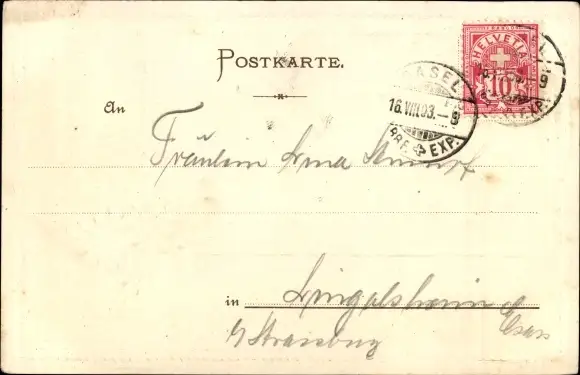 POSTKARTE.
HELVETIA
10
BASEL
16.VIII.03.–9
BRF. EXP.
An
Fräulein Irma
in Lingolsheim
b/ Strassburg Elsass